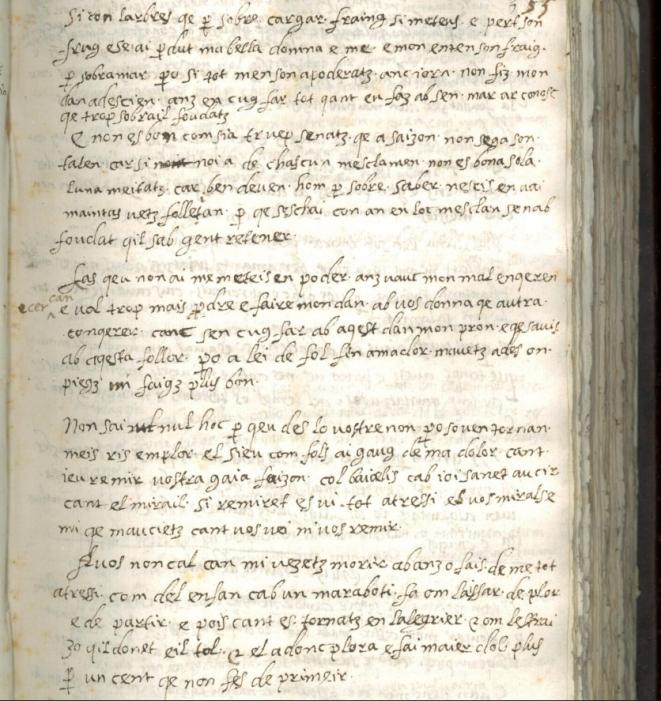 Si con larbres qe ꝑ sobre cargar fraing si meteus e pert son
frug ese ai ꝑdut ma bella domna e me e mon enten son fraig.
ꝑ sobramar ꝑo si tot men son apoderatz. anc iorn non fiz mon
dan adescien. anz en cug far tot qant eu faz ab sen. mar ar conosc
qe trop sobrail foudatz
E non es bom com sia truep senatz. qe a saizon non sega son
talen. car si noi a de chascun mesclamen. non es bona sola
luna meitatz. car ben deven hom ꝑ sobre saber nescis en vai
maintas vetz folleian. ꝑ qe seschai con an en loc mesclan sen ab
foudat qil sab gent retener.
Las qeu non ai me meteis en poder. anz vauc mon mal enqeren
e val trop mais ꝑdre e faire mon dan ab vos donna qe autra
conqerer. canc sen cug far ab aqest dan mon pron. e qe savis
ab aqesta follor. ꝑo a lei de fol fin amador. mavetz ades on
piegz mi faigz plus bon.
Non sai nul hoc ꝑ qeu des lo vostre non. ꝑo soven tornan
meis ris em plor. el sieu com fols ai gaug de ma dolor. cant
ieu remir vostra gaia faizon. col baicelis cab ioi sanet aucir
cant el mirail si remiret es vi. tot atressi es vos miralse
mi qe maucietz cant vos vei ni vos remir.
A vos non cal can mi vezetz morir abanz o fais de me tot
atressi. com del enfan cab un maraboti. fa om laissar de plor
e de partir. e pois cant es tornatz en lalegrier. 2 om lestrai
zo qil donet eil tol. 2 el adonc plora e fai maier dol plus
ꝑ un cent qe non fes de primeir.